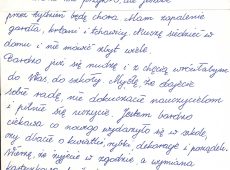 przez tydzień będę chora. Mam zapalenie
gardła, krtani i tchawicy. Muszę siedzieć w
domu i nie mówić zbyt wiele.
Bardzo już się nudzę i z chęcią wróciłabym
do Was do szkoły. Myślę, że dajecie
sobie radę, nie dokuczacie nauczycielom
i pilnie się uczycie. Jestem bardzo
ciekawa co nowego wydarzyło się w szkole,
czy dbacie o kwiatki, rybki, dekoracje i porządek.
Wierzę, że żyjecie w zgodzie a wymiana